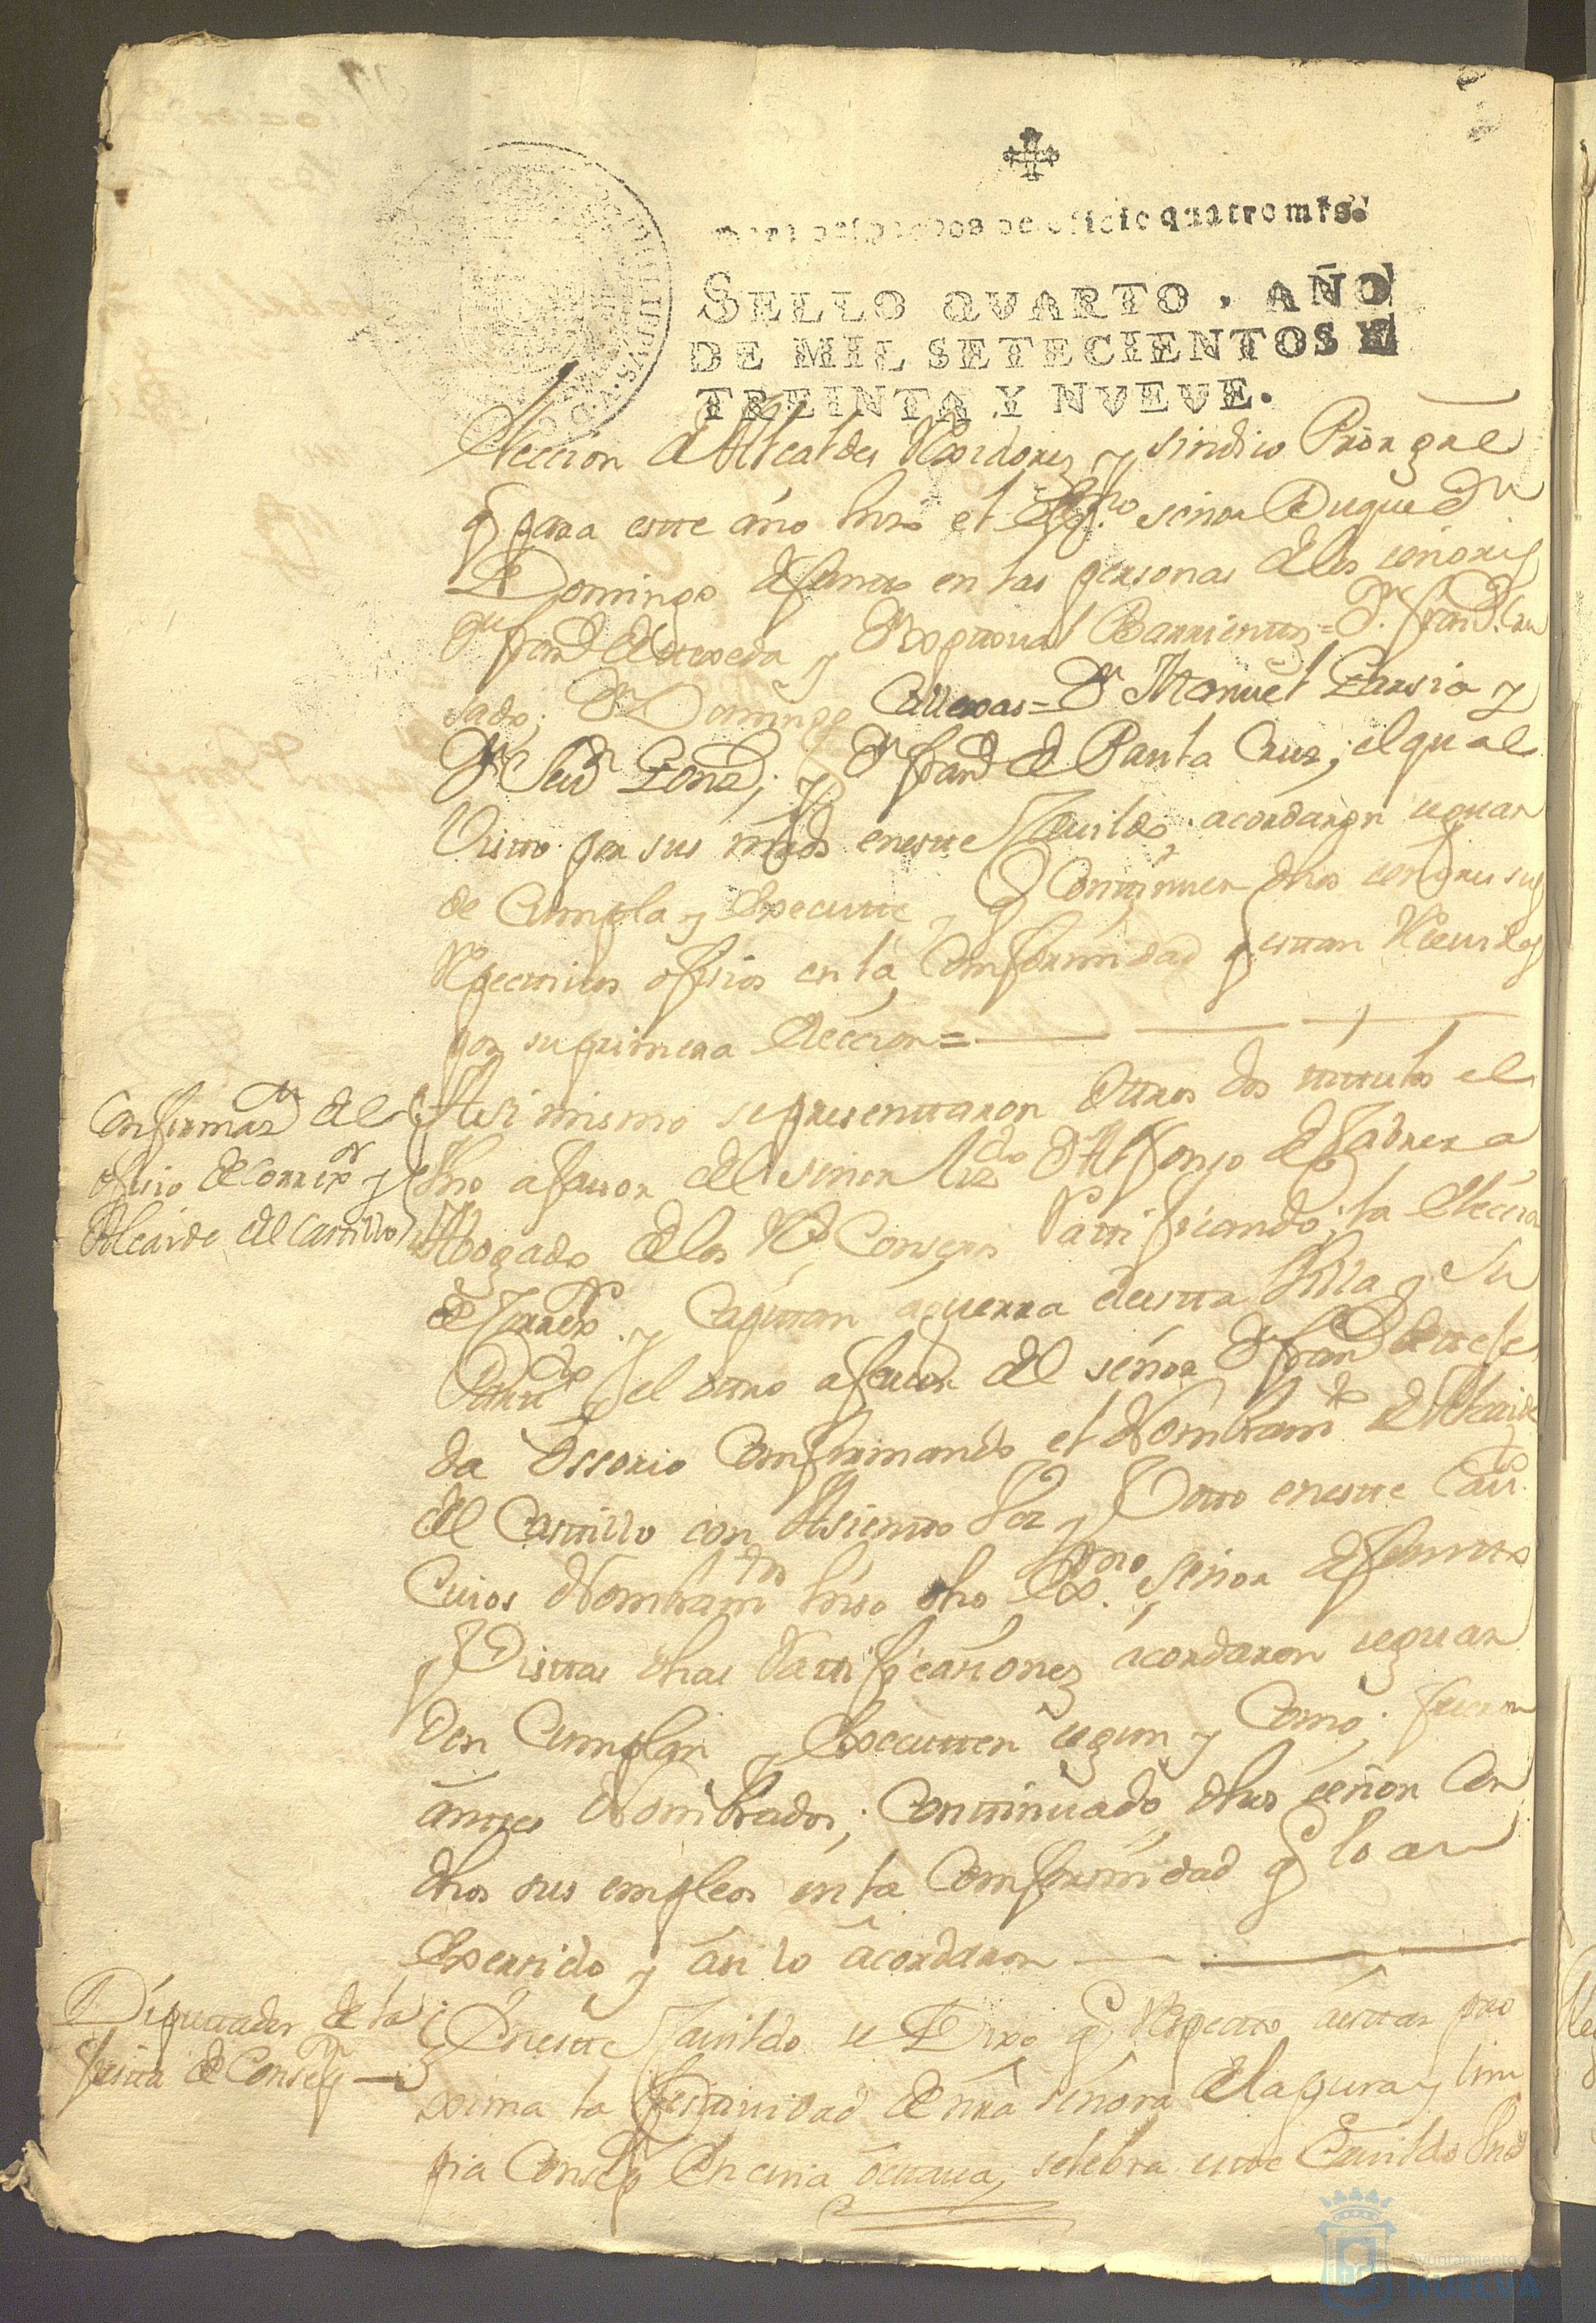 para despachos de oficio quatro mrs.
SELLO QVARTO. AÑO
DE MIL SETECIENTOS Y
TREINTA Y NVEVE.
eleccion de Alcaldes Rexidores y sindico Pror gral
q para este año hizo el Exmo señor Duque Dn
Domingo difunto en las personas de los señores
Dn franco y Dn Xptoval Barrientos = Dn franco
sado; Dn Domingo = Dn Manuel Garsia y
Dn Gonz; y Dn franco de Santa Cruz; el qual
Visto por sus mrds en este Cauildo, acordaron se guar
de Cumpla y Execute, y q Continuen dhos señores sus
Respectivos ofisios en la Comformidad q estan Reciuidos
por su primera eleccion =
Confirmazn del
ofisio de Correxor y
Alcaide del Castillo
Asimismo se presenttaron ottros dos titulos el
Vno a fauor del señor Lizdo Dn Alfonso de Cabrera
Abogado de los Rs Consejos Rattificando la eleccion
de Correxor y Capitan a guerra de esta Villa y su
y el otro a fauor del señor Dn franco de
da Ossorio Confirmando el Nombramto de Alcaide
del Castillo con Asiento Voz y Voto en este Caudo
Cuios Nombramtos hiso dho Exmo señor difunto
y Vistas dhas Rattificasiones acordaron se guar
den Cumplan y Executten segun y Como fueron
antes Nombrados; Continuado dhos señor Con
dhos sus empleos en la Comformidad q lo an
Exersido y asi lo acordaron
Diputtados de la
fiesta de Consepn
En este Cauildo se Dixo q Respecto a estar pro
xima la festiuidad de nra señora de la pura y lim
pia Consepn En cuia octaua, selebra este Cauildo Vna
Ayuntamiento
HUELVA